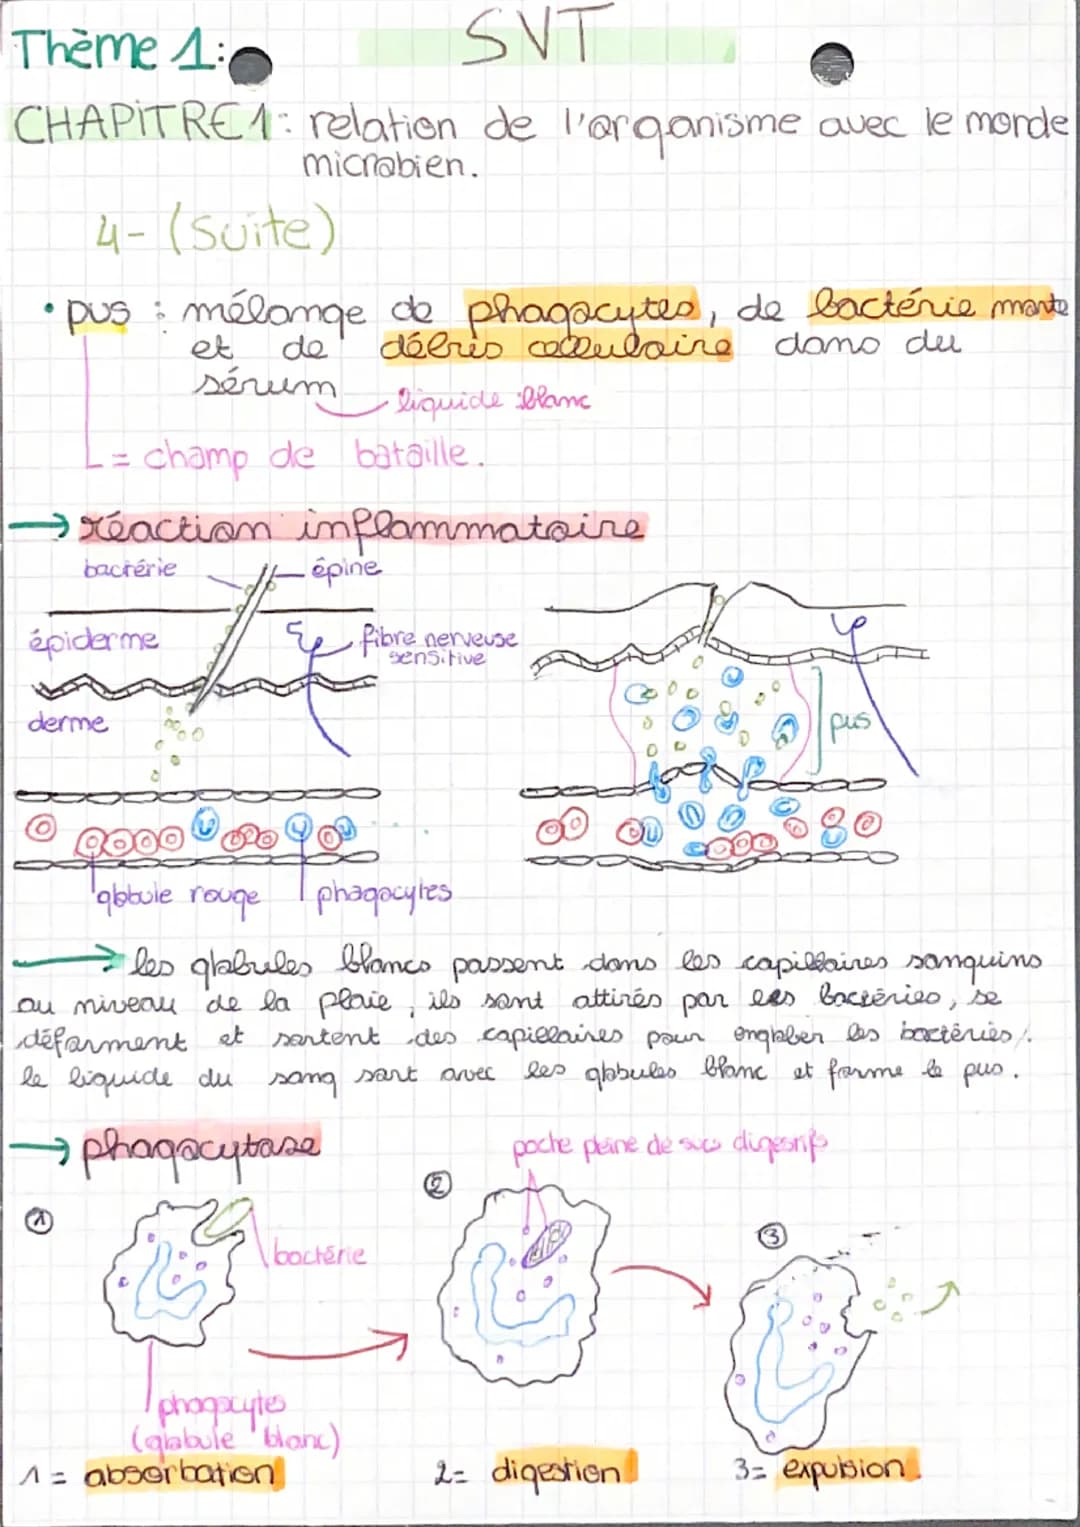 SVT
Thème 1:
CHAPITRE 1: relation de l'organisme avec le monde
microbien.
4- (Suite)
• pus : mélange de phagocytes, de bactérie morte
et de débris cellulaire dans du
sérum
liquide blanc
= champ de bataille.
→ réaction inflammatoire
bactérie
épine
épiderme
fibre nerveuse
sensitive
derme
pus
globule rouge
phagocytes
→ les globules blancs passent dans les capillaires sanguins
au niveau de la plaie, ils sont attirés par les bactéries, se
déforment et sortent des capillaires pour englober les bactéries.
le liquide du sang sort avec les globules blanc et forme le pus.
→ phagocytose
poche pleine de sucs digestifs
①
②
③
bactérie
phagocytes
(globule blanc)
1 = absorbation
2= digestion
3= expulsion.